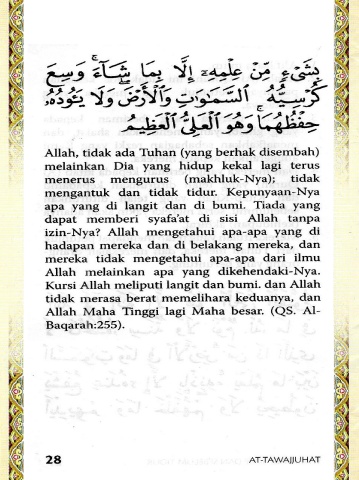 بِشَيْءٍ مِّنْ عِلْمِهِۦٓ إِلَّا بِمَا شَآءَ ۚ وَسِعَ
كُرْسِيُّهُ السَّمَٰوَٰتِ وَالْأَرْضَ ۖ وَلَا يَـُٔودُهُۥ
حِفْظُهُمَا ۚ وَهُوَ الْعَلِيُّ الْعَظِيمُ
Allah, tidak ada Tuhan (yang berhak disembah)
melainkan Dia yang hidup kekal lagi terus
menerus mengurus (makhluk-Nya); tidak
mengantuk dan tidak tidur. Kepunyaan-Nya
apa yang di langit dan di bumi. Tiada yang
dapat memberi syafa'at di sisi Allah tanpa
izin-Nya? Allah mengetahui apa-apa yang di
hadapan mereka dan di belakang mereka, dan
mereka tidak mengetahui apa-apa dari ilmu
Allah melainkan apa yang dikehendaki-Nya.
Kursi Allah meliputi langit dan bumi. dan Allah
tidak merasa berat memelihara keduanya, dan
Allah Maha Tinggi lagi Maha besar. (QS. Al-
Baqarah:255).
28 AT-TAWAJJUHAT